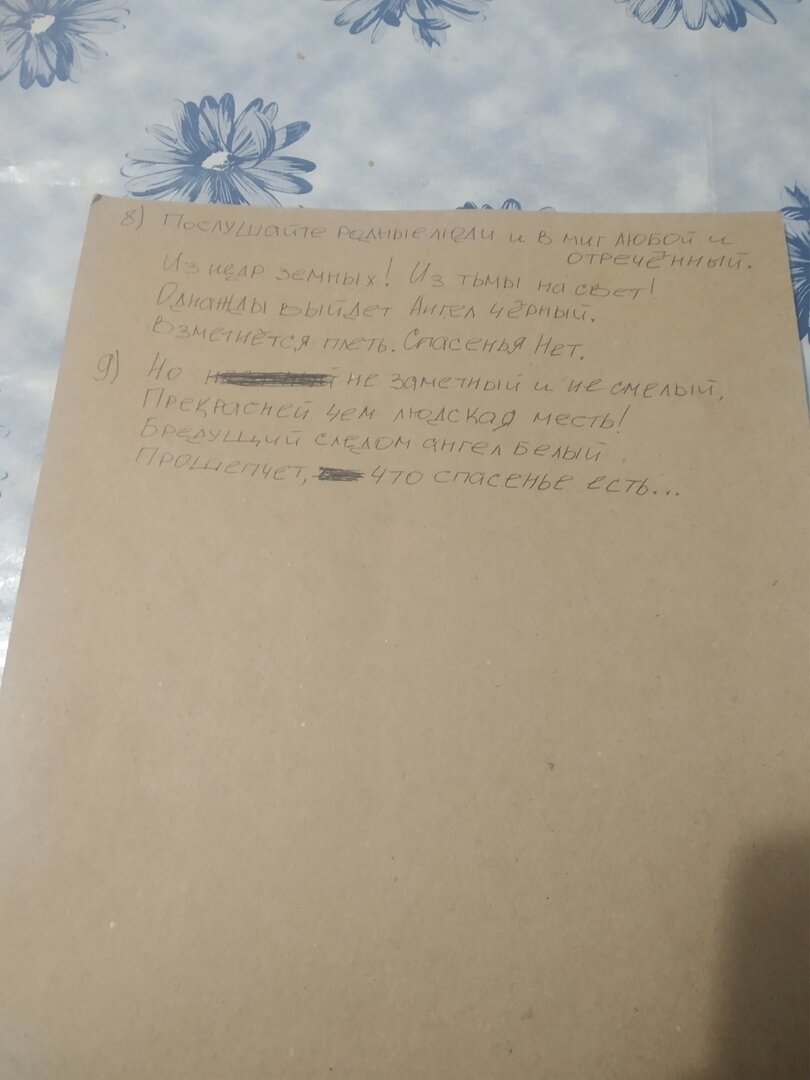 8) Послушайте родные люди и в миг любой и
отречённый.
Из недр земных! Из тьмы на свет!
Однажды выйдет Ангел чёрный.
Взметнётся плеть. Спасенья Нет.
9) Но не заметный и не смелый,
Прекрасней чем людская месть!
Бредущий следом ангел белый
Прошепчет, что спасенье есть...